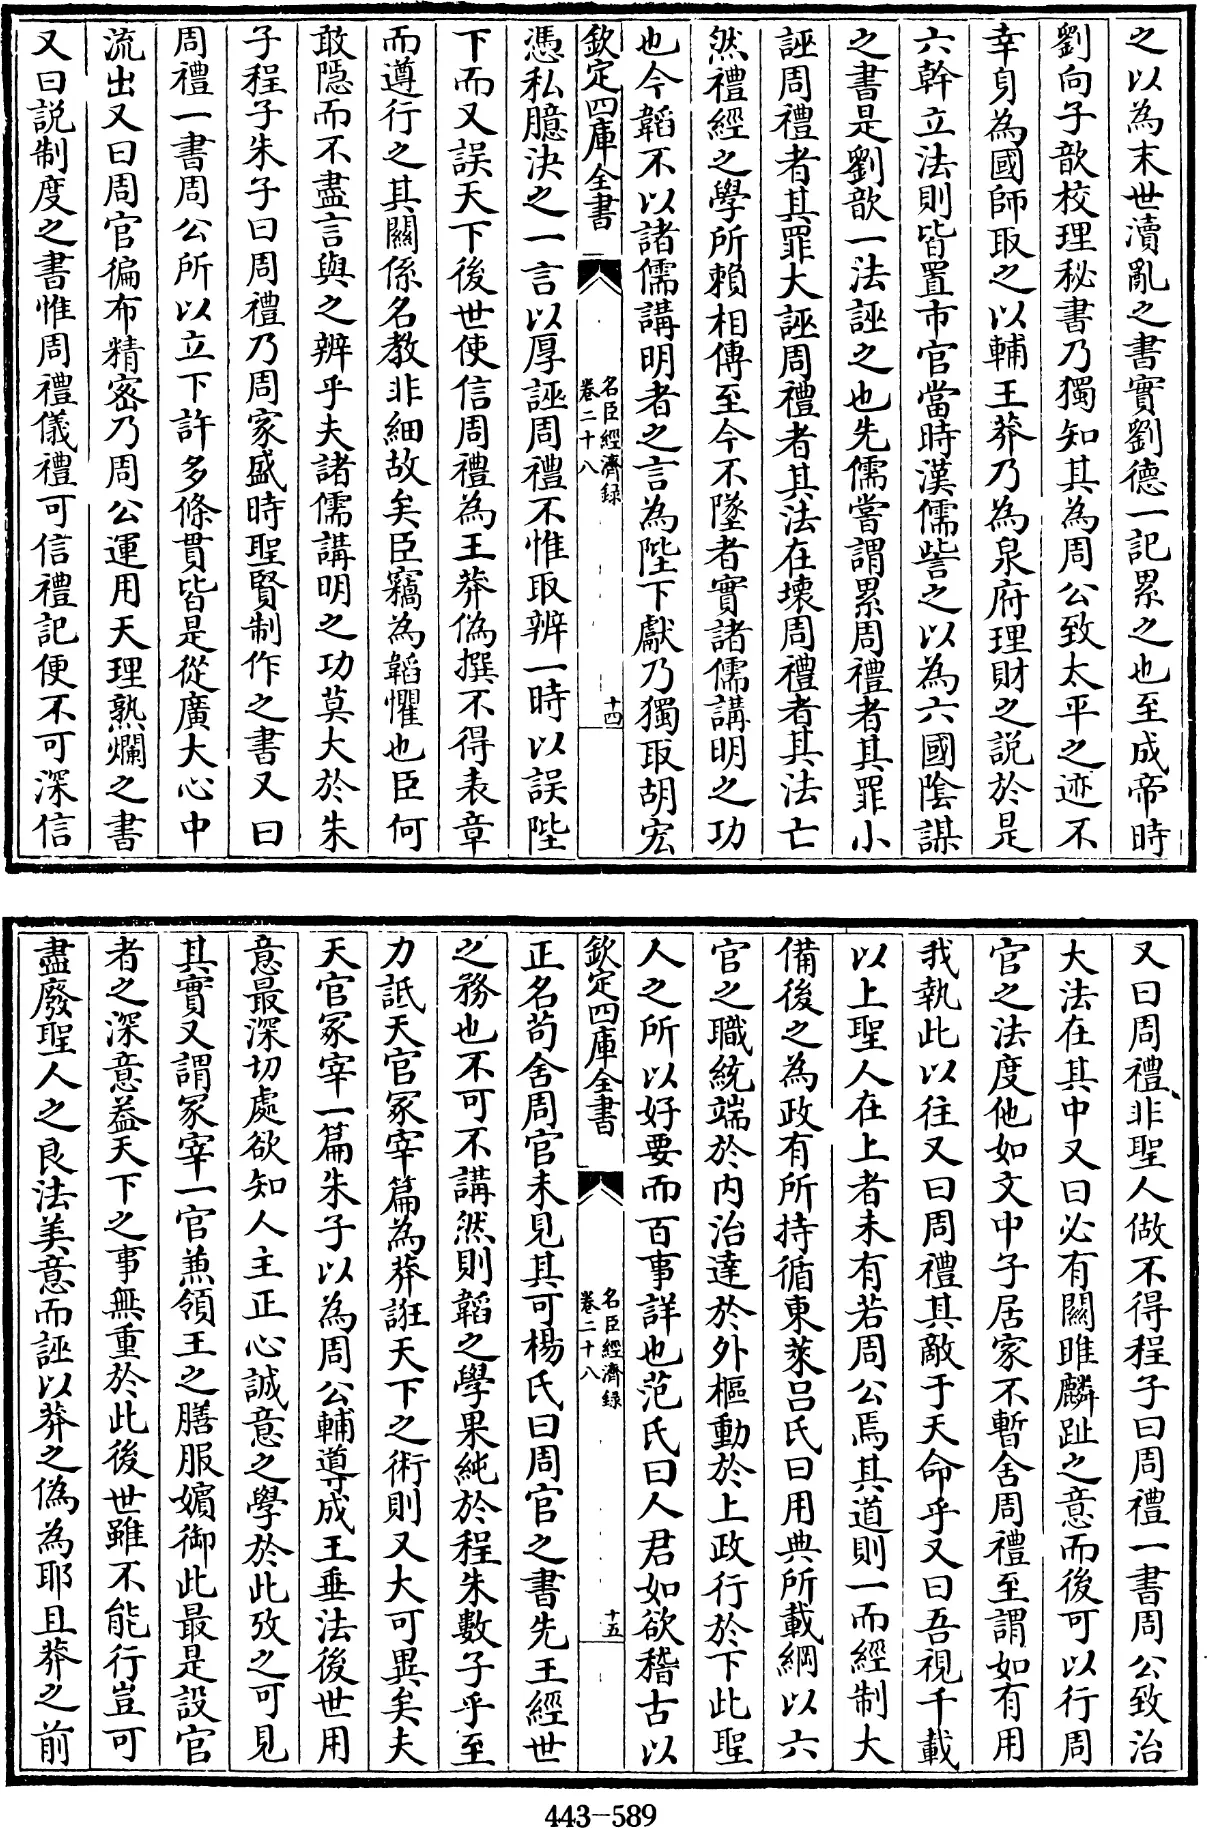 之以為末世瀆亂之書實劉德一記累之也至成帝時
劉向子歆校理秘書乃獨知其為周公致太平之迹不
幸身為國師取之以輔王莽乃為泉府理財之説於是
六幹立法則皆置市官當時漢儒訾之以為六國陰謀
之書是劉歆一法誣之也先儒嘗謂累周禮者其罪小
誣周禮者其罪大誣周禮者其法在壊周禮者其法亡
然禮經之學所賴相傳至今不墜者實諸儒講明之功
也今韜不以諸儒講明者之言為陛下獻乃獨取胡宏
欽定四庫全書
名臣經濟録
卷二十八
十四
憑私臆决之一言以厚誣周禮不惟取辨一時以誤陛
下而又誤天下後世使信周禮為王莽偽撰不得表章
而遵行之其關係名教非細故矣臣竊為韜懼也臣何
敢隠而不盡言與之辨乎夫諸儒講明之功莫大於朱
子程子朱子曰周禮乃周家盛時聖賢制作之書又曰
周禮一書周公所以立下許多條貫皆是從廣大心中
流出又曰周官徧布精宻乃周公運用天理熟爛之書
又曰説制度之書惟周禮儀禮可信禮記便不可深信
又曰周禮非聖人做不得程子曰周禮一書周公致治
大法在其中又曰必有關雎麟趾之意而後可以行周
官之法度他如文中子居家不暫舍周禮至謂如有用
我執此以往又曰周禮其敵于天命乎又曰吾視千載
以上聖人在上者未有若周公焉其道則一而經制大
備後之為政有所持循東萊吕氏曰用典所載綱以六
官之職統端於内治達於外樞動於上政行於下此聖
人之所以好要而百事詳也范氏曰人君如欲稽古以
欽定四庫全書
名臣經濟録
卷二十八
十五
正名苟舍周官未見其可楊氏曰周官之書先王經世
之務也不可不講然則韜之學果純於程朱數子乎至
力詆天官冢宰篇為莽誑天下之術則又大可異矣夫
天官冢宰一篇朱子以為周公輔導成王垂法後世用
意最深切處欲知人主正心誠意之學於此攷之可見
其實又謂冢宰一官兼領王之膳服嬪御此最是設官
者之深意葢天下之事無重於此後世雖不能行豈可
盡廢聖人之良法美意而誣以莽之偽為耶且莽之前
443-589